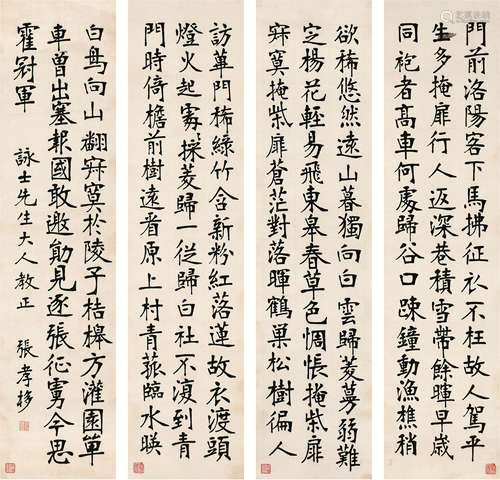 門前洛陽客下馬拂征衣不枉故人駕平
生多掩扉行人返深巷積雪帶餘暉早歲
同袍者高車何處歸谷口疎鐘動漁樵稍
欲稀悠然遠山暮獨向白雲歸菱蔓弱難
定楊花輕易飛東皋春草色惆悵掩柴扉
寂寞掩柴扉蒼茫對落暉鶴巢松樹徧人
訪蓽門稀綠竹含新粉紅落蓮故衣渡頭
燈火起處採菱歸一從歸白社不復到青
門時倚檐前樹遠看原上村青菰臨水映
白鳥向山翻寂寞於陵子桔槔方灌園單
車曾出塞報國敢邀勛見逐張征虜今思
霍冠軍
詠士先生大人教正
張孝栘